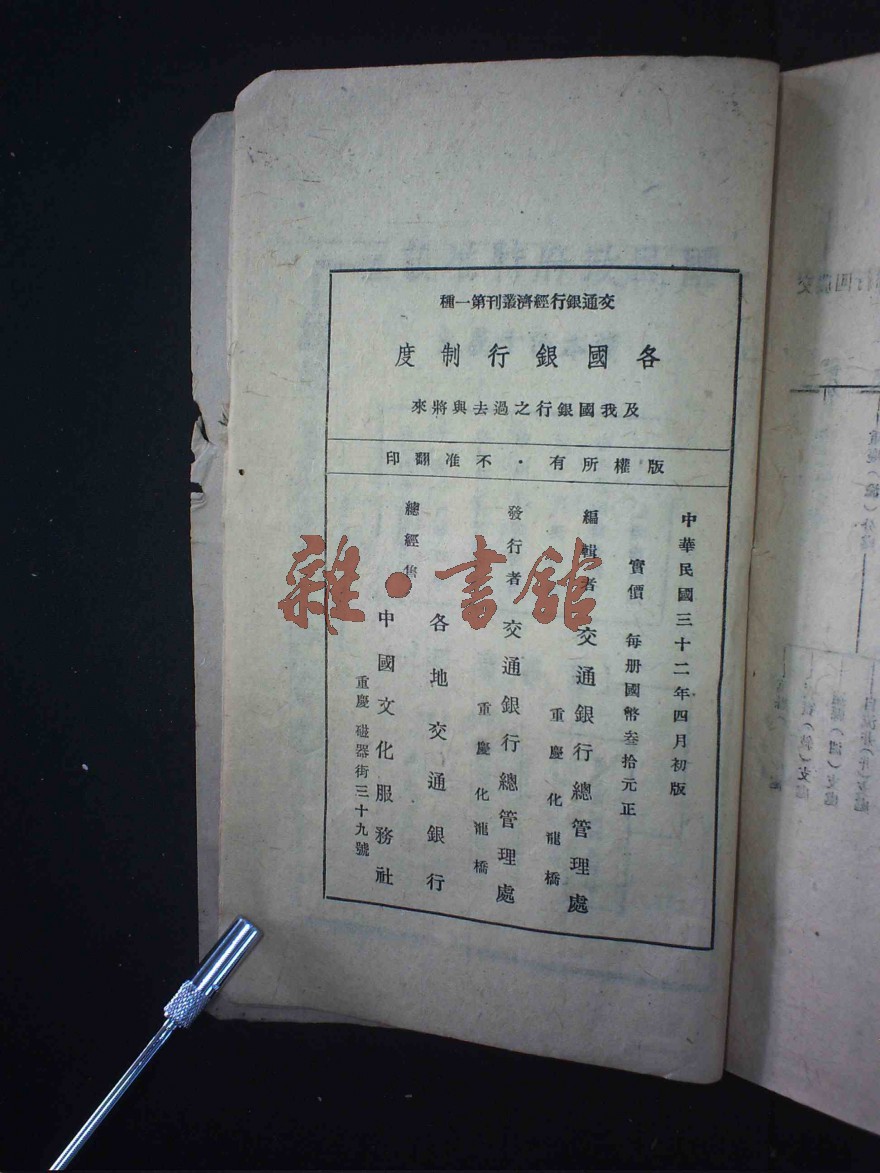 交通銀行經濟叢刊第一種
各國銀行制度
及我國銀行之過去與將來
版權所有・不准翻印
中華民國三十二年四月初版
實價 每册國幣叁拾元正
編輯者 交通銀行總管理處
重慶化龍橋
發行者 交通銀行總管理處
重慶化龍橋
總經售 各地交通銀行
中國文化服務社
重慶磁器街三十九號
雜・書館